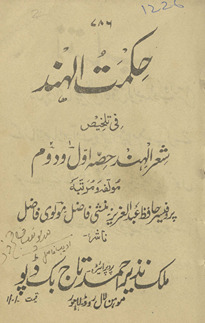 1226
۷۸۶
حکمت الہند
فی تلخیص
شعر الہند حصہ اول و دوم
مولفہ و مرتبہ
پروفیسر حافظ عبدالعزیز منشی فاضل مولوی فاضل
ناشر
ملک نذیر احمد پروپرائٹر تاج بک ڈپو
موہن لال روڈ لاہور
قیمت